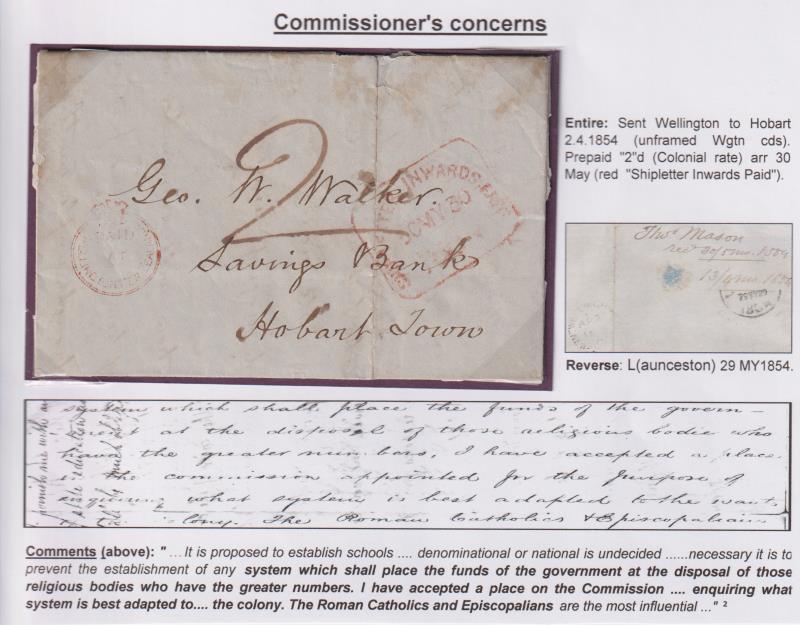 Commissioner's concerns
Geo. W. Walker.
Savings Bank
Hobart Town
2
INWARDS
MY 30
PAID
Entire: Sent Wellington to Hobart
2.4.1854 (unframed Wgtn cds).
Prepaid "2"d (Colonial rate) arr 30
May (red "Shipletter Inwards Paid").
Thos Mason
1854
Reverse: L(aunceston) 29 MY1854.
system which shall place the funds of the govern-
ment at the disposal of those religious bodie who
have the greater numbers, I have accepted a place
in the commission appointed for the purpose of
enquiring what system is best adapted to the wants
colony. The Roman Catholics & Episcopalians
Comments (above): " ...It is proposed to establish schools .... denominational or national is undecided ......necessary it is to
prevent the establishment of any system which shall place the funds of the government at the disposal of those
religious bodies who have the greater numbers. I have accepted a place on the Commission .... enquiring what
system is best adapted to.... the colony. The Roman Catholics and Episcopalians are the most influential ..." 2